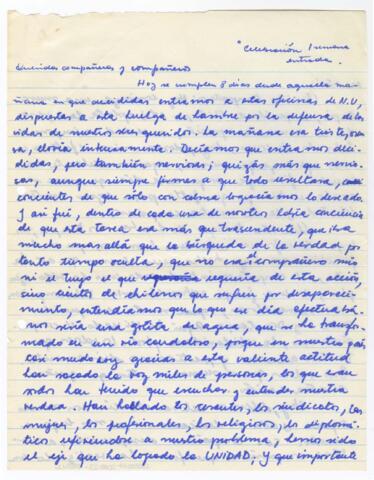 "Celebración 1 semana
entrada.
Queridas compañeras y compañeros
Hoy se cumplen 8 días desde aquella ma-
ñana en que decididas entramos a estas oficinas de N.U,
dispuestas a esta huelga de hambre por la defensa de las
vidas de nuestros seres queridos. La mañana era triste,
sa, llovía intensamente. Decíamos que entramos deci-
didas, pero también nerviosas; quizás más que nervio-
sas, aunque siempre firmes a que todo resultara,
concientes de que sólo con calma lograríamos lo deseado.
Y así fué, dentro de cada una de nosotras había conciencia
de que esta tarea era más que trascendente, que iba
mucho más allá que la búsqueda de la verdad por
tanto tiempo oculta, que no era el compañero mío
ni el tuyo el que requería de esta acción,
sino cientos de chilenos que sufren por desapareci-
miento, entendíamos que lo que ese día efectuába-
mos sería una gotita de agua, que se ha transfor-
mado en un río caudaloso, porque en nuestro país
casi mudo hoy gracias a esta valiente actitud
han sacado la voz miles de personas, los que eran
sordos han tenido que escuchar y entender nuestra
verdad. Han hablado los cesantes, los sindicatos, las
mujeres, los profesionales, los religiosos, los diplomá-
ticos refiriéndose a nuestro problema, hemos sido
el eje que ha logrado la UNIDAD, y que importante